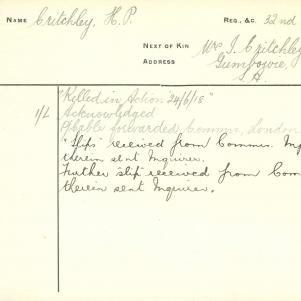 NAME Critchley, H. P. REG., &C. 32nd
NEXT OF KIN Mrs J. Critchley
ADDRESS Gumbowie,
S.A.
"Killed in Action 24/6/18"
1/L Acknowledged
forwarded Commn. London
"Slip" received from Commn.
therein sent Inquirer.
Further slip received from Com
therein sent Inquirer.